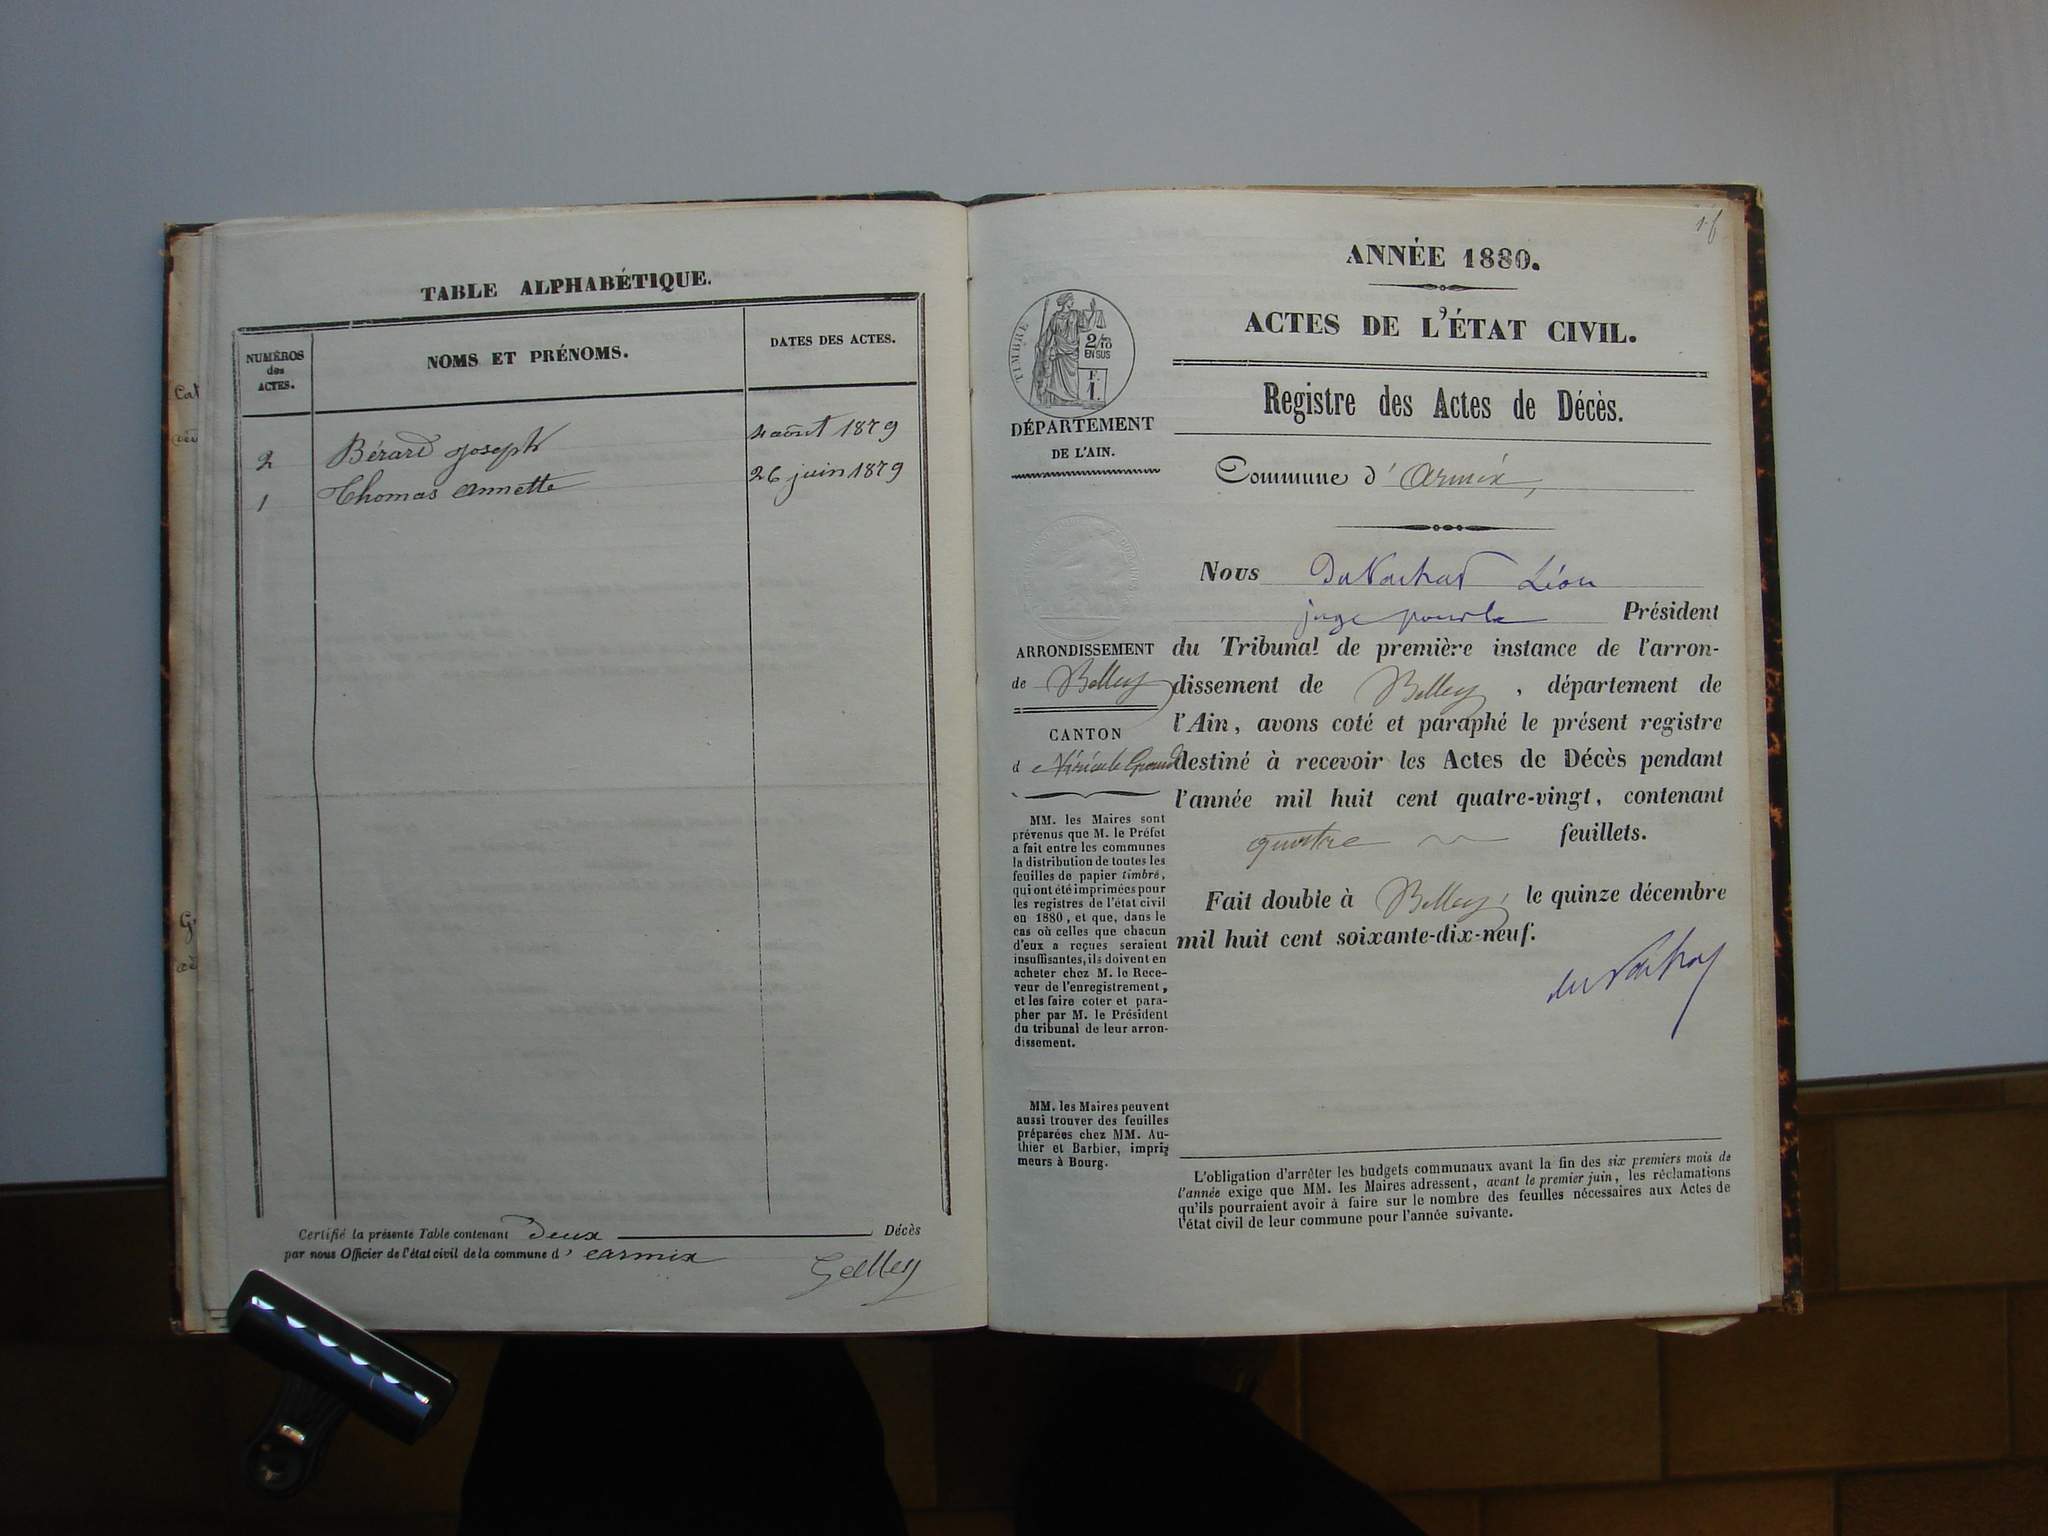 TABLE ALPHABÉTIQUE.
NUMÉROS
des
ACTES.
NOMS ET PRÉNOMS.
DATES DES ACTES.
2 Bérard Joseph 4 août 1879
1 Thomas Annette 26 juin 1879
Certifié la présente Table contenant Deux Décès
par nous Officier de l'état civil de la commune d' armix
ANNÉE 1880.
ACTES DE L'ÉTAT CIVIL.
Registre des Actes de Décès.
Commune d' Armix,
TIMBRE
2/10
EN SUS
F.
1.
DÉPARTEMENT
DE L'AIN.
ARRONDISSEMENT
de Belley
CANTON
MM. les Maires sont
prévenus que M. le Préfet
a fait entre les communes
la distribution de toutes les
feuilles de papier timbré,
qui ont été imprimées pour
les registres de l'état civil
en 1880, et que, dans le
cas où celles que chacun
d'eux a reçues seraient
insuffisantes, ils doivent en
acheter chez M. le Rece-
veur de l'enregistrement,
et les faire coter et para-
pher par M. le Président
du tribunal de leur arron-
dissement.
MM. les Maires peuvent
aussi trouver des feuilles
préparées chez MM. Au-
thier et Barbier, impri-
meurs à Bourg.
Nous Léon
juge pour le Président
du Tribunal de première instance de l'arron-
dissement de Belley, département de
l'Ain, avons coté et paraphé le présent registre
destiné à recevoir les Actes de Décès pendant
l'année mil huit cent quatre-vingt, contenant
quatre feuillets.
Fait double à Belley, le quinze décembre
mil huit cent soixante-dix-neuf.
L'obligation d'arrêter les budgets communaux avant la fin des six premiers mois de
l'année exige que MM. les Maires adressent, avant le premier juin, les réclamations
qu'ils pourraient avoir à faire sur le nombre des feuilles nécessaires aux Actes de
l'état civil de leur commune pour l'année suivante.